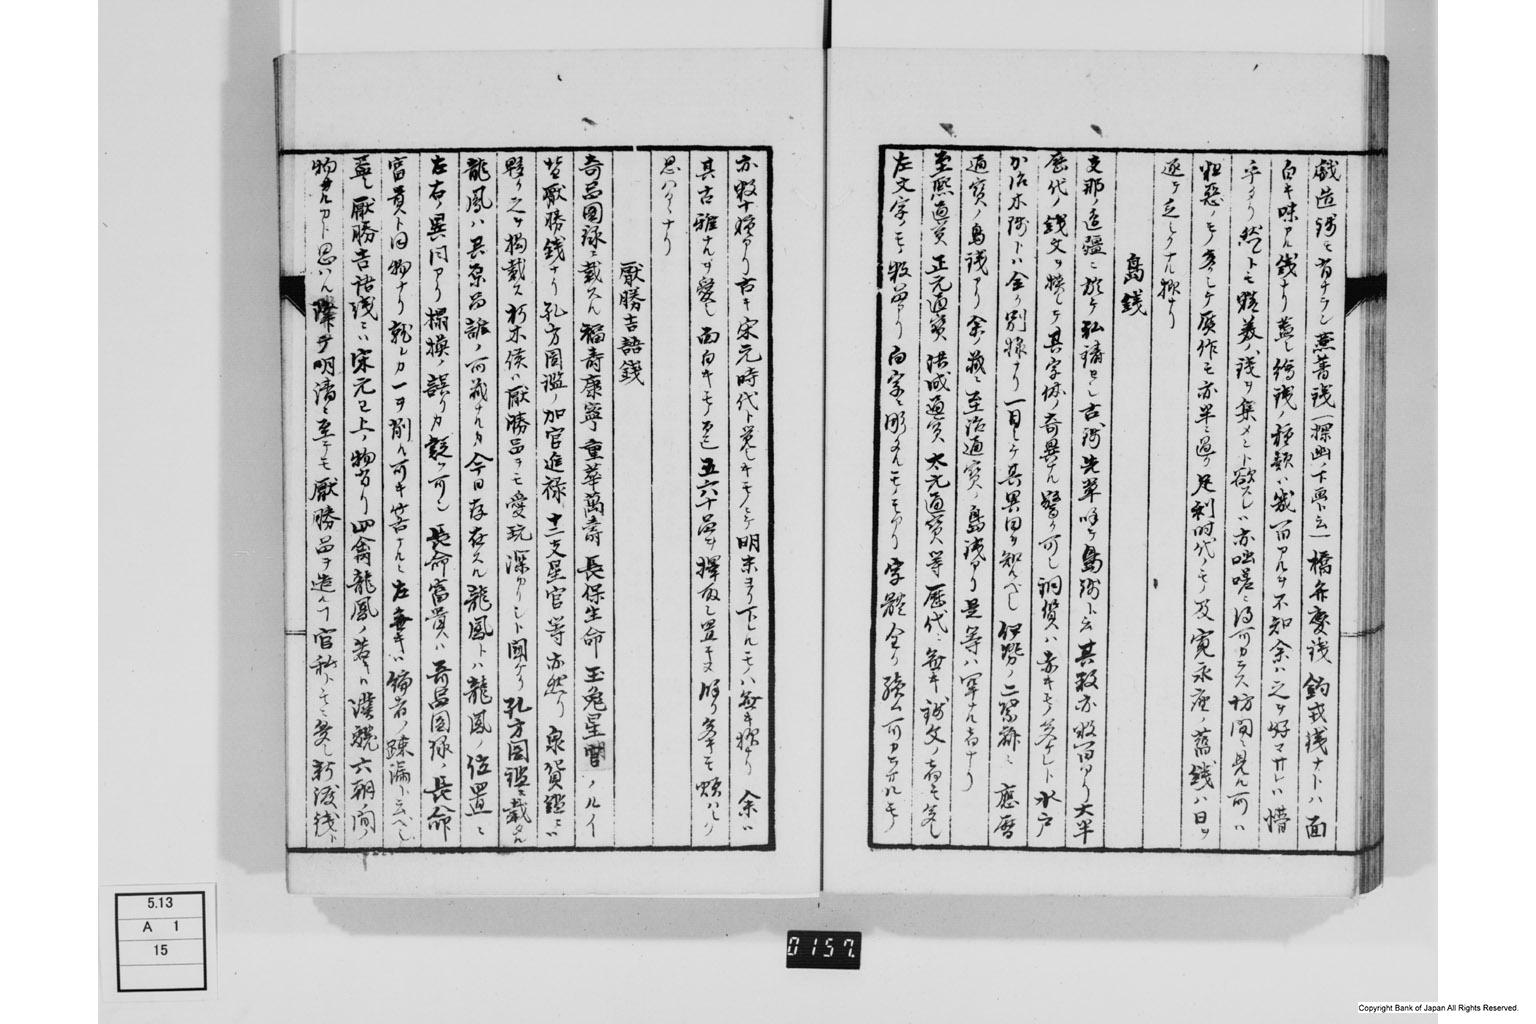 戯造銭モ有ナラン恵普銭(探幽ノ下画ト云)橋弁慶銭 釣戎銭ナトハ面
白キ味アル銭ナリ蓋シ絵銭ノ種類ハ幾百アルヲ不知余ハ之ヲ好マサレハ懵
乎タリ然レトモ
粗悪ノモノ多シテ贋作モ亦半ニ過ク足利時代ノモノ及寛永座ノ旧銭ハ日ヲ
逐テ乏シクナル様ナリ
島銭
支那ノ辺疆ニ於テ私鋳セシ古銭先輩呼テ島銭ト云其数亦数百アリ大半
歴代ノ銭文ヲ模シテ其字体ノ奇異ナル驚ク可シ銅質ハ赤キモノ多ケレト水戸
加治木銭トハ全ク別様ナリ一目シテ其異同ヲ知ルベシ
通宝ノ島銭アリ余ノ蔵ニ至治通宝ノ島銭アリ是等ハ罕ナル者ナリ
至熙通宝 正元通宝 洪成通宝 太元通宝等歴代ニ無キ銭文ノ者モ多シ
左文字ノモノ数品アリ白字ニ彫タルモノモアリ字體全ク読ム可カラサルモノ
亦数十種アリ古キ宋元時代ト覚シキモノニテ明末ヨリ下レルモノハ無キ様ナリ余ハ
其古雅ナルヲ愛シ面白キモノ而已五六十品ヲ擇取シ置キヌ餘リ多キモ煩ハシク
思ハルヽナリ
厭勝吉語銭
奇品図録ニ載スル福寿康寧 重華萬寿 長保生命 玉兔星官ノルイ
皆厭勝銭ナリ孔方図鑑ノ加官進禄 十二支星官等亦然リ泉貨鑑ニハ
夥ク之ヲ掲載ス朽木侯ハ厭勝品ヲモ愛玩深カリシト聞ケリ孔方図鑑ニ載タル
龍鳳ハ其原品誰ノ所蔵ナルカ今日存在スル龍鳳トハ龍鳳ノ位置ニ
左右ノ異同アリ摺模ノ誤リカ疑フ可シ長命富貴ハ奇品図録ノ長命
富貴ト同物ナリ孰レカ一ヲ削ル可キ筈ナルニ左無キハ編者ノ疎漏ト云ベシ
蓋シ厭勝吉語銭ニハ宋元已上ノ物アリ四禽龍鳳ノ若キハ漢魏六朝ノ間ノ
物ナルカト思ハル降テ明清ニ至テモ厭勝品ヲ造ルヿ官私トモニ多シ新渡銭ト
5.13
A 1
15
0157.
Copyright Bank of Japan All Rights Reserved.